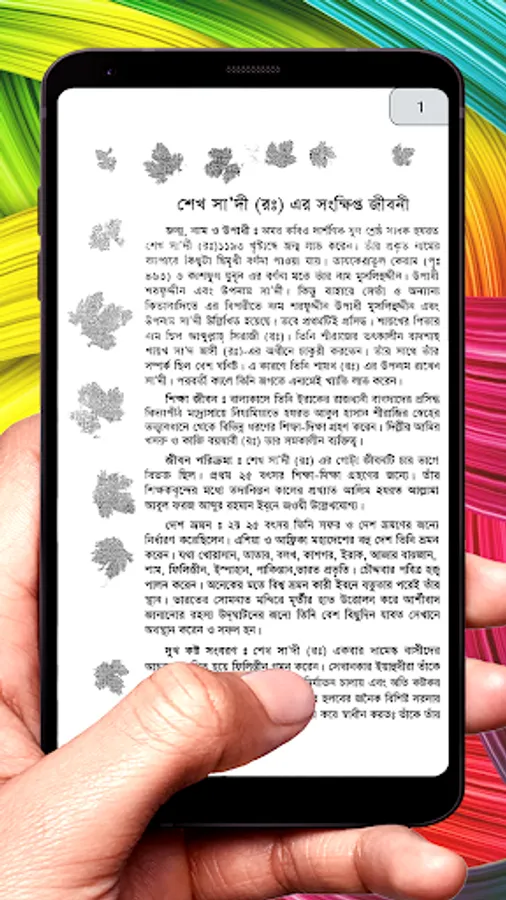 1
শেখ সা'দী (রঃ) এর সংক্ষিপ্ত জীবনী
জন্ম, নাম ও উপাধী : অমর কবিও দার্শণিক যুগ শ্রেষ্ঠ সাধক হযরত
শেখ সা'দী (রঃ)১১৯৩ খৃষ্টাব্দে জন্ম লাভ করেন। তাঁর প্রকৃত নামের
ব্যাপারে কিছুটা দ্বিমুখী বর্ণনা পাওয়া যায়। (পৃঃ
ও এর বর্ণনা মতে তাঁর নাম মুসলিহুদ্দীন। উপাধী
শরফুদ্দীন এবং উপনাম সা'দী। কিন্তু বাহারে ও অন্যান্য
কিতাবাদিতে এর বিপরীতে নাম শরফুদ্দীন উপাধী মুসলিহুদ্দীন এবং
উপনাম সা'দী উল্লিখিত হয়েছে। তবে প্রথমটিই প্রসিদ্ধ। শায়খের পিতার
নাম ছিল আব্দুল্লাহ্ সিরাজী (রঃ)। তিনি শীরাজের তৎকালীন বাদশাহ
শায়খ সা'দ জঙ্গী (রঃ)-এর অধীনে চাকুরী করতেন। তাঁর সাথে তাঁর
সম্পর্ক ছিল বেশ ঘনিষ্ট। এ কারণে তিনি শায়খ (রঃ) এর উপনাম রাখেন
সা'দী। পরবর্তী কালে তিনি জগতে এনামেই খ্যাতি লাভ করেন।
শিক্ষা জীবন : বাল্যকালে তিনি ইরাকের রাজধানী বাগদাদের প্রসিদ্ধ
বিদ্যাপীঠ মাদ্রাসায়ে নিযামিয়াতে হযরত আবুল হাসান শীরাজির স্নেহের
তত্ত্বাবধানে থেকে বিভিন্ন ধরণের শিক্ষা-দিক্ষা গ্রহণ করেন। দিল্লীর আমির
খসরু ও কাজি বয়যাবী (রঃ) তার সমকালীন ব্যক্তিত্ব।
জীবন পরিক্রমা : শেখ সা'দী (রঃ) এর গোটা জীবনটি চার ভাগে
বিভক্ত ছিল। প্রথম ২৫ বৎসর শিক্ষা-দিক্ষা গ্রহণের জন্যে। তাঁর
শিক্ষকবৃন্দের মধ্যে তদানিন্তন কালের প্রখ্যাত আলিম হযরত আল্লামা
আবুল ফরজ আব্দুর রহমান ইবনে জওযী উল্লেখযোগ্য।
দেশ ভ্রমন : ২য় ২৫ বৎসর তিনি সফর ও দেশ ভ্রমণের জন্যে
নির্ধারণ করেছিলেন। এশিয়া ও আফ্রিকা মহাদেশের বহু দেশ তিনি ভ্রমন
করেন। যথা খোরাসান, তাতার, বলখ, কাশগর, ইরাক, আজার বায়জান,
শাম, ফিলিস্তীন, ইস্পাহান, পাকিস্তান,ভারত প্রভৃতি। চৌদ্দবার পবিত্র হজ্ব
পালন করেন। অনেকের মতে বিশ্ব ভ্রমন কারী ইবনে বতুতার পরেই তাঁর
স্থান। ভারতের সোমনাত মন্দিরে মূর্ত্তীর হাত উত্তোলন করে আর্শীবাদ
জানানোর রহস্য উদ্ঘাটনের জন্যে তিনি বেশ কিছুদিন যাবত সেখানে
অবস্থান করেন ও সফল হন।
দুখ কষ্ট সংবরণ : শেখ সা'দী (রঃ) একবার দামেস্ক বাসীদের
হয়ে ফিলিস্তীন গমন করেন। সেখানকার ইয়াহুদীরা তাঁকে
নির্যাতন চালায় এবং অতি কষ্টকর
হলবের জনৈক বিশিষ্ট সরদার
করে স্বাধীন করতঃ তাঁকে তাঁর